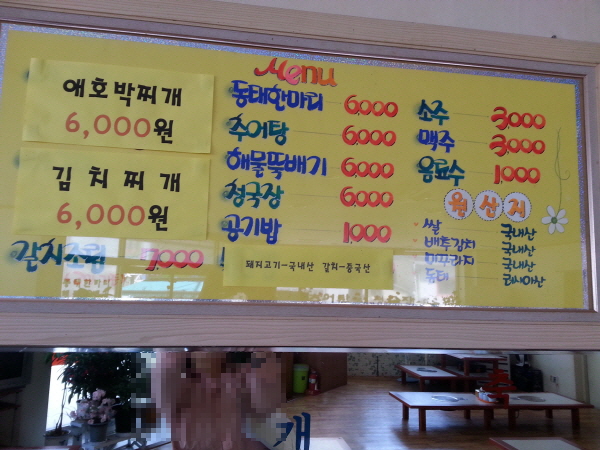 Menu
애호박찌개
6,000원
김치찌개
6,000원
갈치조림 7,000
동태한마리 6,000
추어탕 6,000
해물뚝배기 6,000
청국장 6,000
공기밥 1,000
소주 3,000
맥주 3,000
음료수 1,000
원산지
쌀 국내산
배추김치 국내산
미꾸라지 국내산
동태 러시아산
돼지고기-국내산 갈치-중국산
개